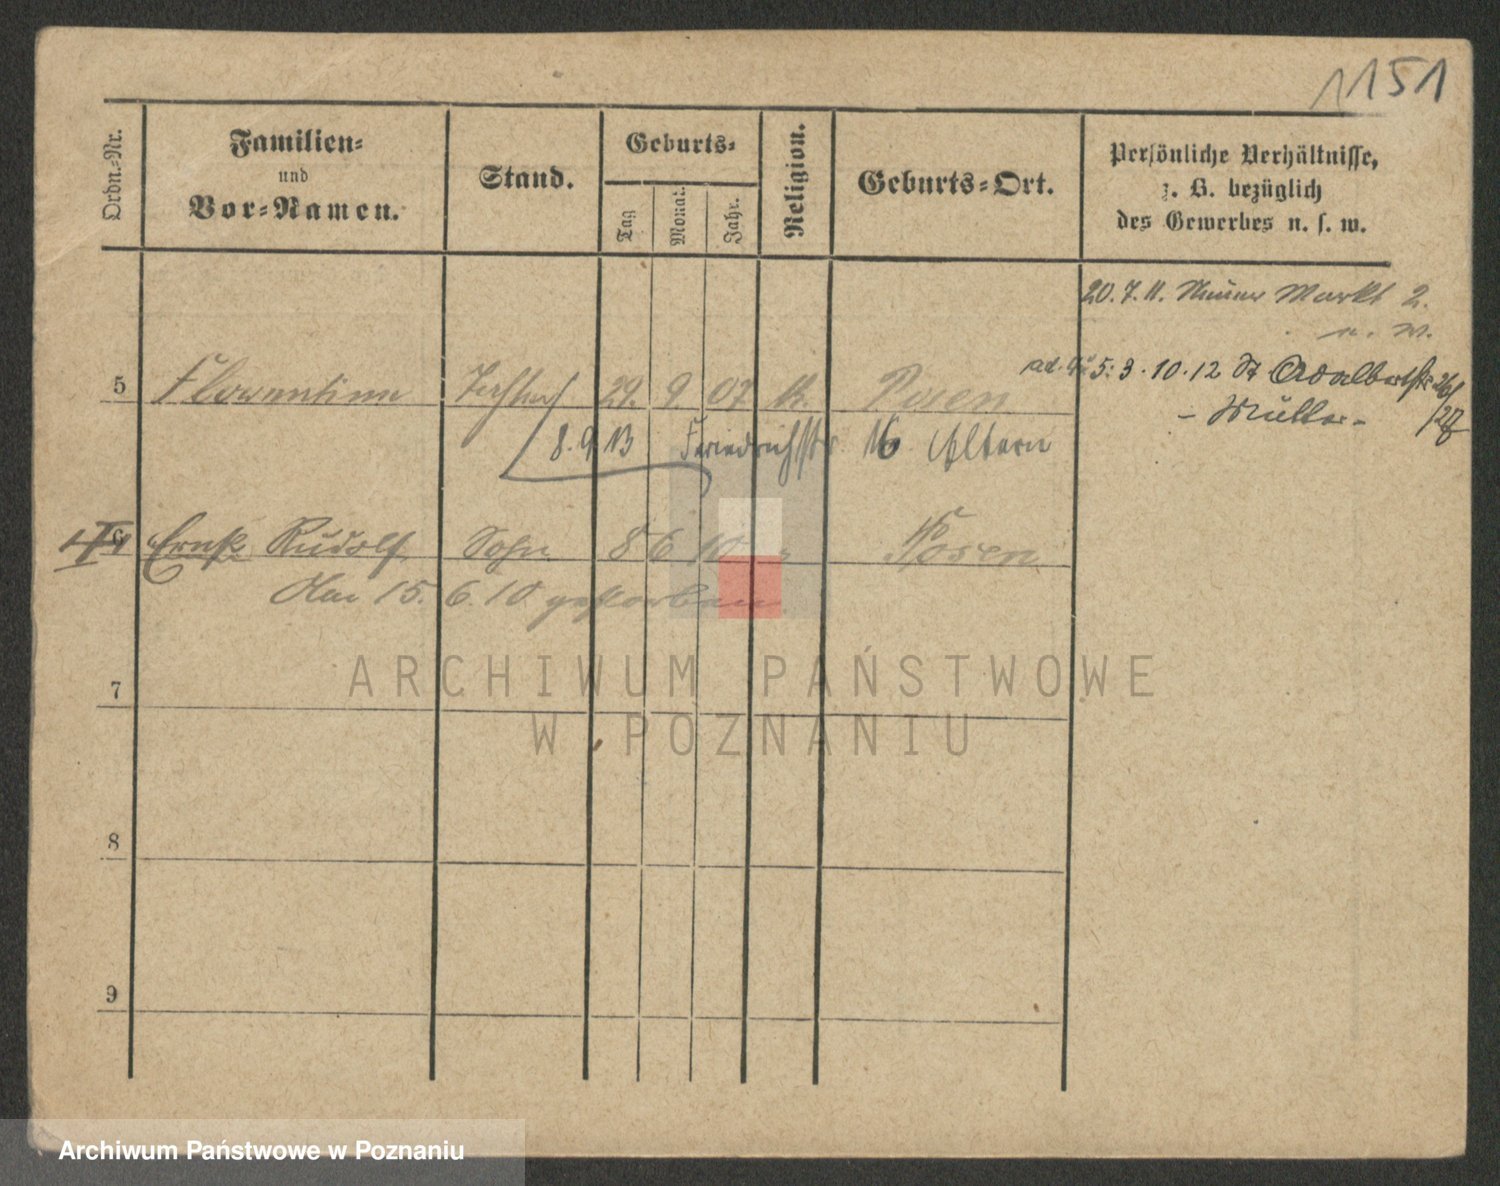 1151
Ordn.-Nr.
Familien-
und
Vor-Namen.
Stand.
Geburts-
Tag
Monat.
Jahr.
Religion.
Geburts-Ort.
Persönliche Verhältnisse,
z. B. bezüglich
des Gewerbes u. s. w.
20. 7. 11. Neuer Markt 2.
ad. 4 u 5: 3. 10. 12 St Adalbertstr 26/27
- Mutter -
5 Florentine Tochter 29. 9. 07 k. Posen
8. 9. 13 Friedrichstr. 16 Eltern
Ernst Rudolf Sohn 8 6 10 " Posen
Am 15. 6. 10 gestorben.
7
8
9
ARCHIWUM PAŃSTWOWE
W POZNANIU
Archiwum Państwowe w Poznaniu